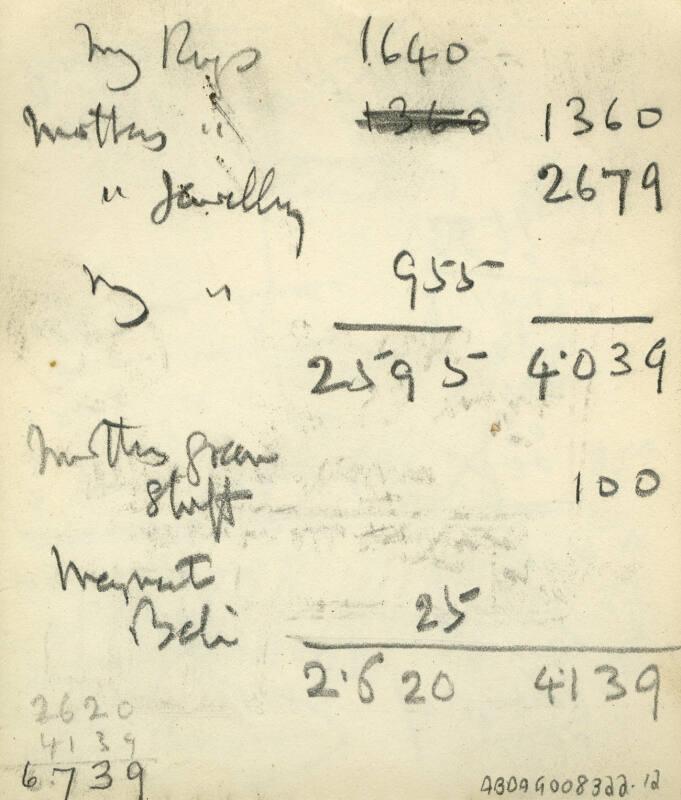 My Rugs 1640
Mothers " 1360 1360
" Jewellry 2679
My " 955
2595 4·039
Mothers green
stuff 100
25
2·620 4·139
2620
4139
6·739
ABDAG008322.12